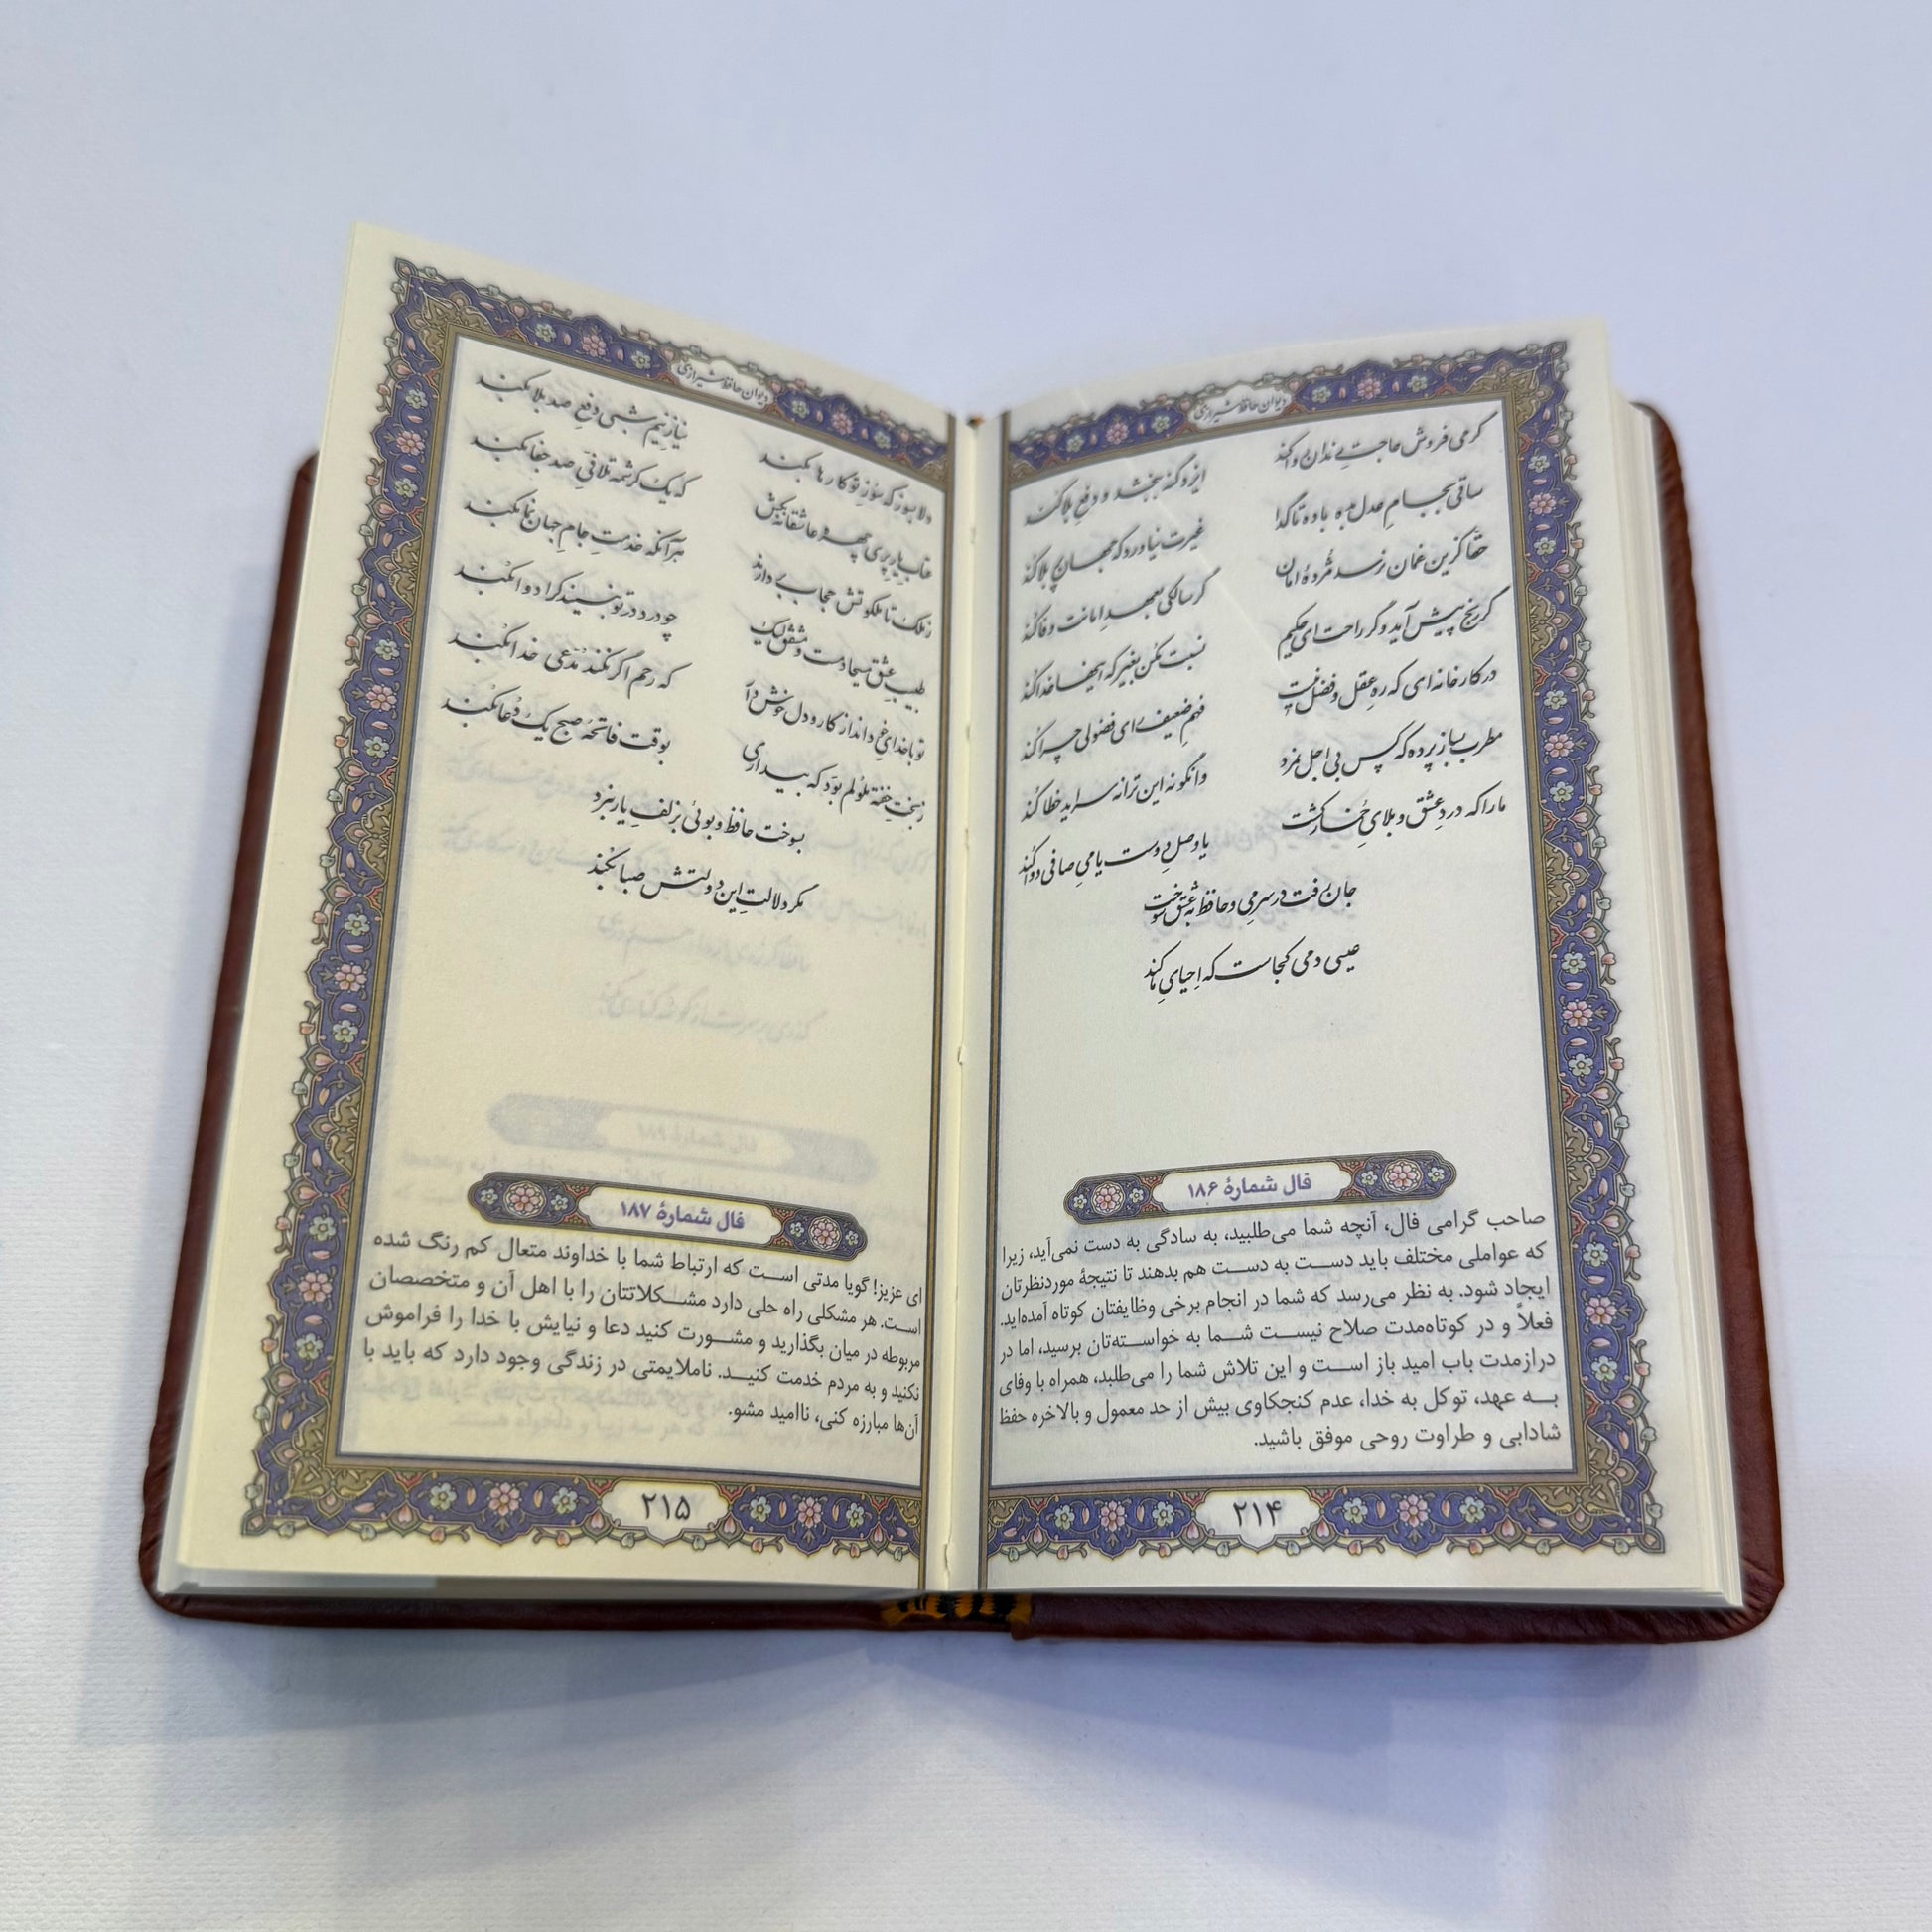 دیوان حافظ شیرازی
گر می فروش حاجت رندان روا کند
ایزد گنه ببخشد و دفع بلا کند
ساقی بجام عدل بده باده تا گدا
غیرت نیاورد که جهان پر بلا کند
حقا کزین غمان برسد مژدهٔ امان
گر سالکی بعهد امانت وفا کند
گر رنج پیش آید و گر راحت ای حکیم
نسبت مکن بغیر که اینها خدا کند
در کارخانه‌ای که ره عقل و فضل نیست
فهم ضعیف رای فضولی چرا کند
مطرب بساز پرده که کس بی اجل نمرد
وانگو نه این ترانه سراید خطا کند
ما را که درد عشق و بلای خمار کشت
یا وصل دوست یا می صافی دوا کند
جان رفت در سر می و حافظ به عشق سوخت
عیسی دمی کجاست که احیای ما کند
فال شمارهٔ ۱۸۶
صاحب گرامی فال، آنچه شما می‌طلبید، به سادگی به دست نمی‌آید، زیرا
که عواملی مختلف باید دست به دست هم بدهند تا نتیجهٔ موردنظرتان
ایجاد شود. به نظر می‌رسد که شما در انجام برخی وظایفتان کوتاه آمده‌اید.
فعلاً و در کوتاه‌مدت صلاح نیست شما به خواسته‌تان برسید، اما در
درازمدت باب امید باز است و این تلاش شما را می‌طلبد، همراه با وفای
به عهد، توکل به خدا، عدم کنجکاوی بیش از حد معمول و بالاخره حفظ
شادابی و طراوت روحی موفق باشید.
۲۱۴
دیوان حافظ شیرازی
دلا بسوز که سوز تو کارها بکند
نیاز نیم شبی دفع صد بلا بکند
عتاب یار پری چهره عاشقانه بکش
که یک کرشمه تلافی صد جفا بکند
ز ملک تا ملکوتش حجاب بردارند
هر آنکه خدمت جام جهان نما بکند
طبیب عشق مسیحا دمست و مشفق لیک
چو درد در تو نبیند کرا دوا بکند
تو با خدای خود انداز کار و دل خوش دار
که رحم اگر نکند مدعی خدا بکند
ز بخت خفته ملولم بود که بیداری
بوقت فاتحهٔ صبح یک دعا بکند
بسوخت حافظ و بوئی بزلف یار نبرد
مگر دلالت این دولتش صبا بکند
فال شمارهٔ ۱۸۷
ای عزیز! گویا مدتی است که ارتباط شما با خداوند متعال کم رنگ شده
است. هر مشکلی راه حلی دارد مشکلاتتان را با اهل آن و متخصصان
مربوطه در میان بگذارید و مشورت کنید دعا و نیایش با خدا را فراموش
نکنید و به مردم خدمت کنید. ناملایمتی در زندگی وجود دارد که باید با
آن‌ها مبارزه کنی، ناامید مشو.
۲۱۵